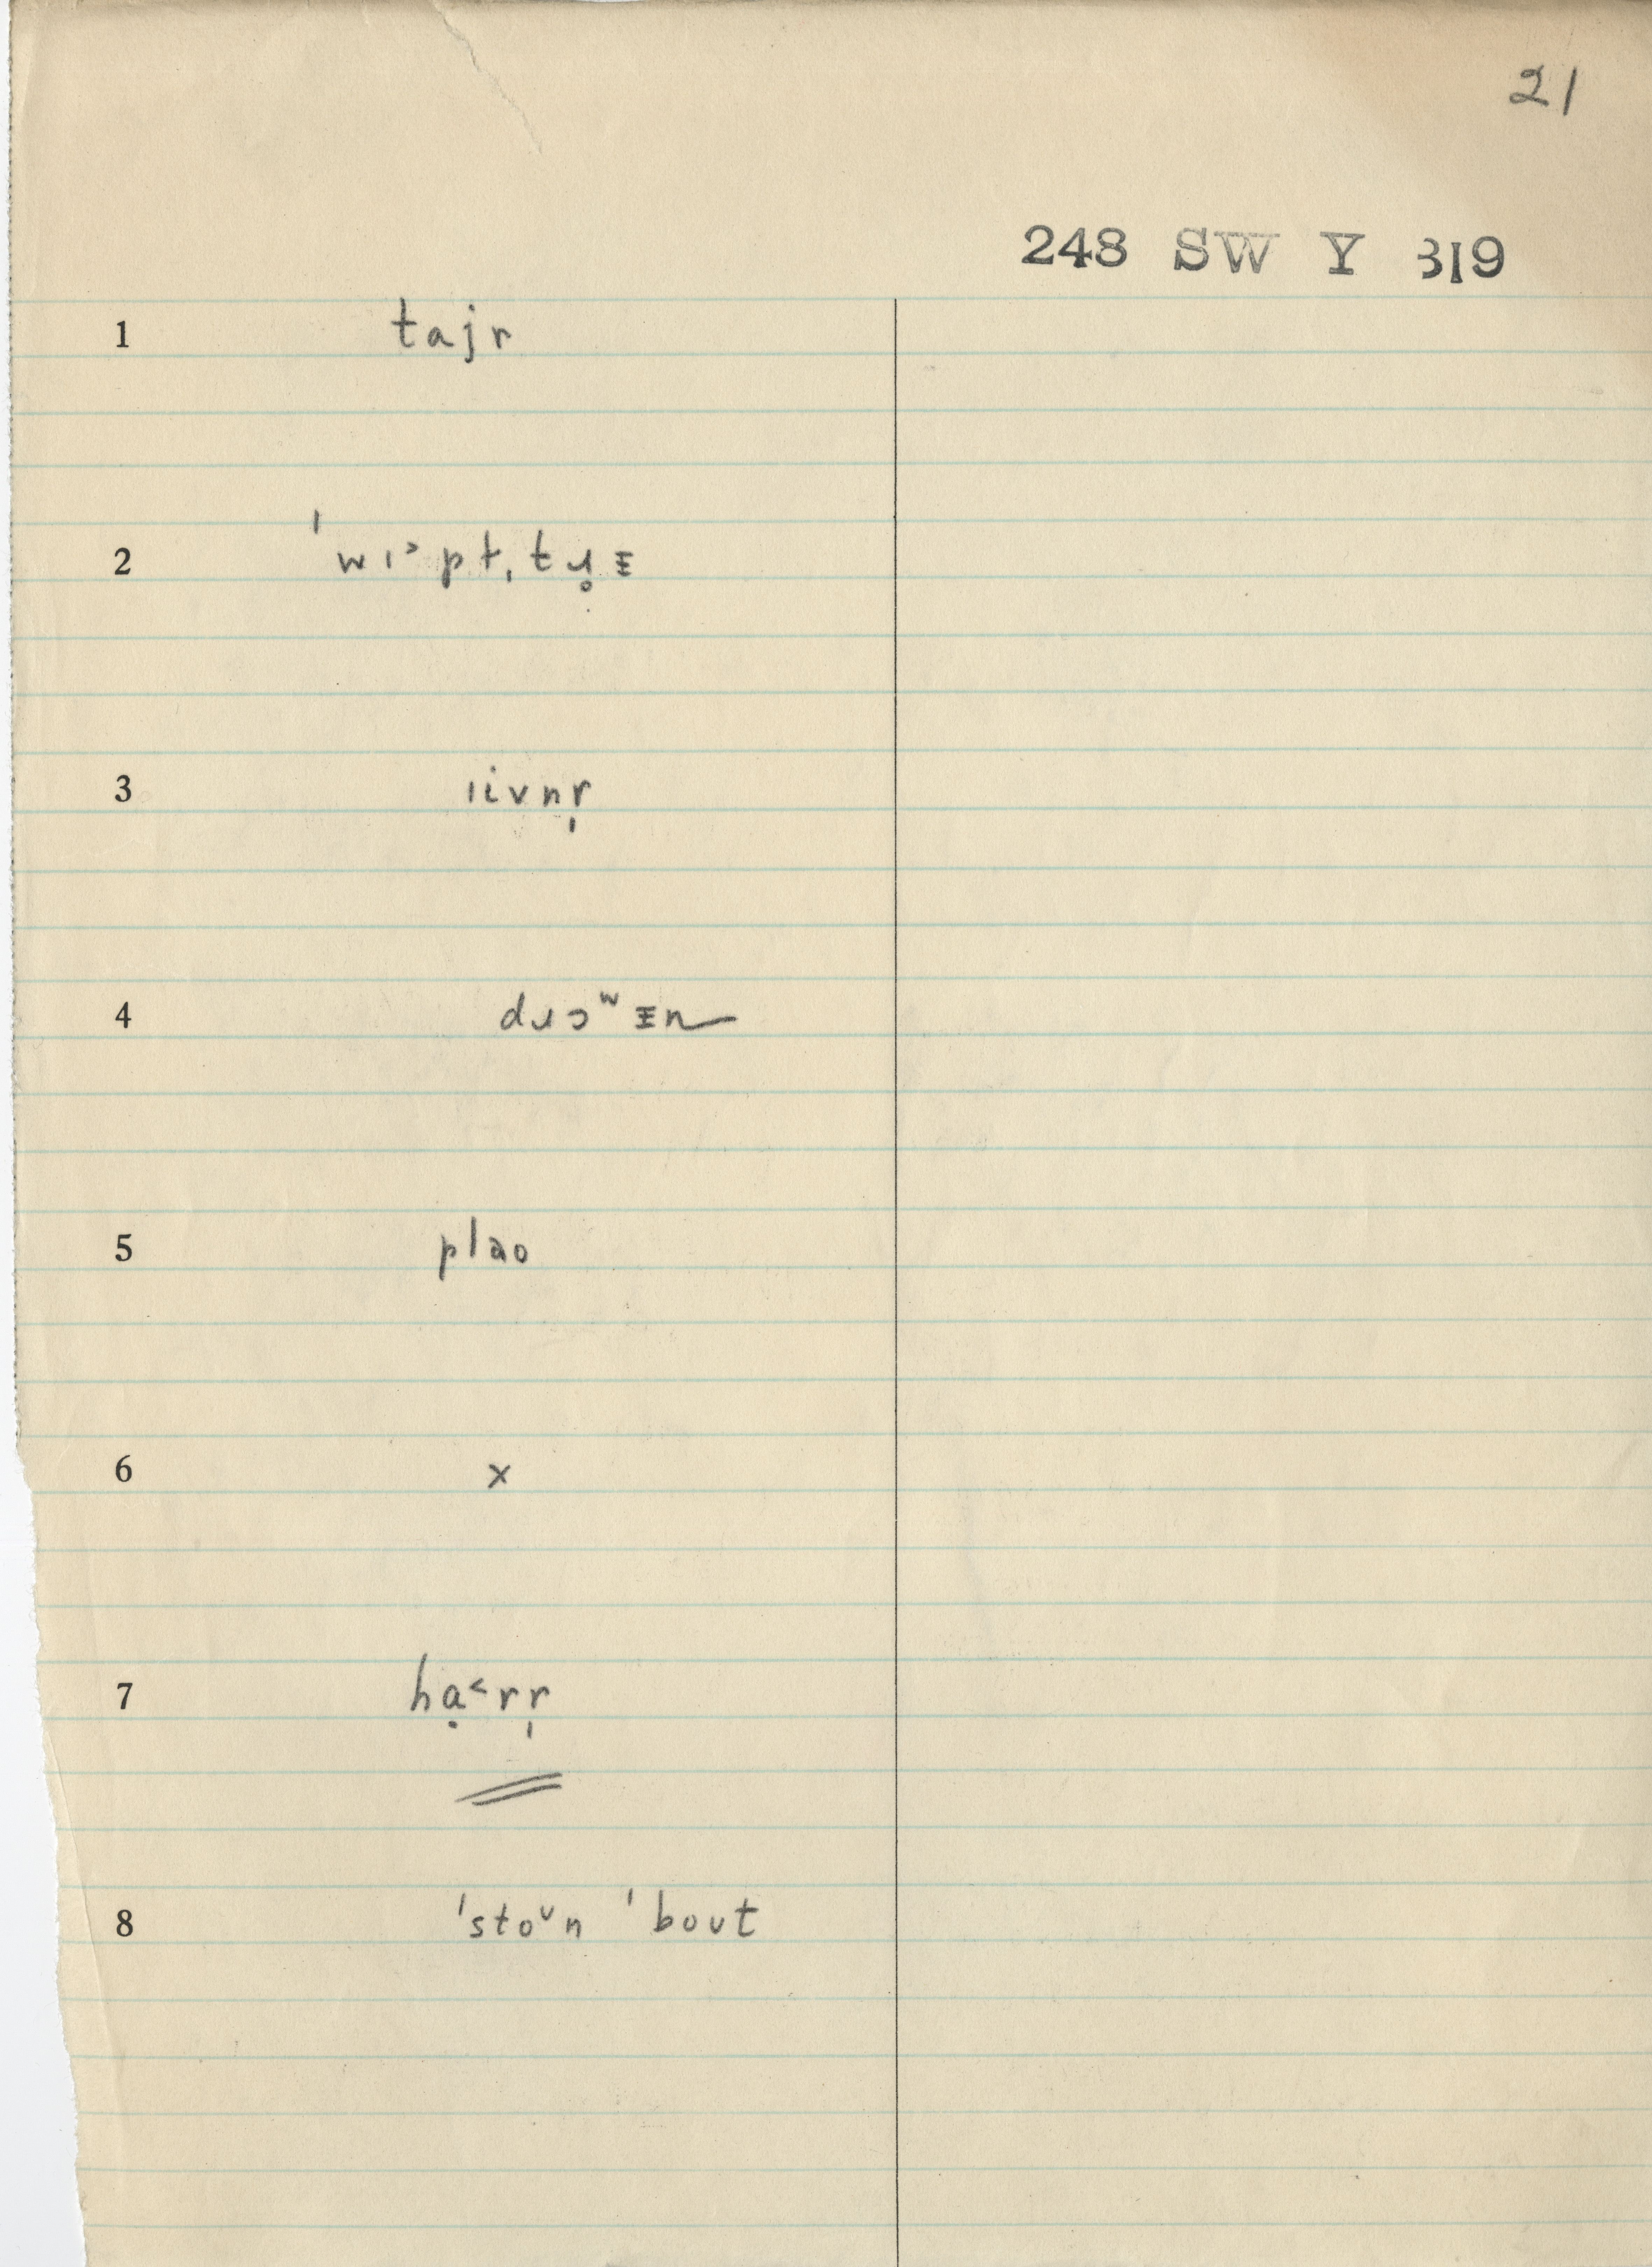 21
248 SW Y 319
1 tajr
2 ˈwɪ˃pt̩tɹ̥ᵻ
3 ɪivnr̩
4 dɹɔʷᵻn
5 plao
6 x
7 hạ˂rr̩
8 ˈstoᶷn ˈboʊt